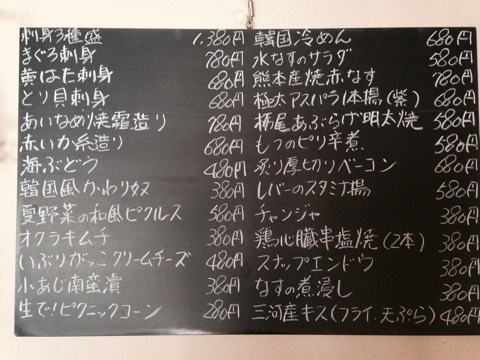 刺身3種盛 1,380円
まぐろ刺身 780円
黄はた刺身 680円
とり貝刺身 680円
あいなめ焼霜造り 780円
赤いか糸造り 680円
海ぶどう 480円
韓国風かわり奴 380円
夏野菜の和風ピクルス 580円
オクラキムチ 380円
いぶりがっこクリームチーズ 480円
小あじ南蛮漬 380円
生で!ピクニックコーン 280円
韓国冷めん 680円
水なすのサラダ 580円
熊本産焼赤なす 780円
極太アスパラ1本揚(紫) 680円
栃尾あぶらげ明太焼 580円
もつのピリ辛煮 580円
炙り厚切りベーコン 680円
レバーのスタミナ揚 580円
チャンジャ 380円
鶏心臓串塩焼(2本) 380円
スナップエンドウ 380円
なすの煮浸し 380円
三河産キス(フライ.天ぷら) 480円